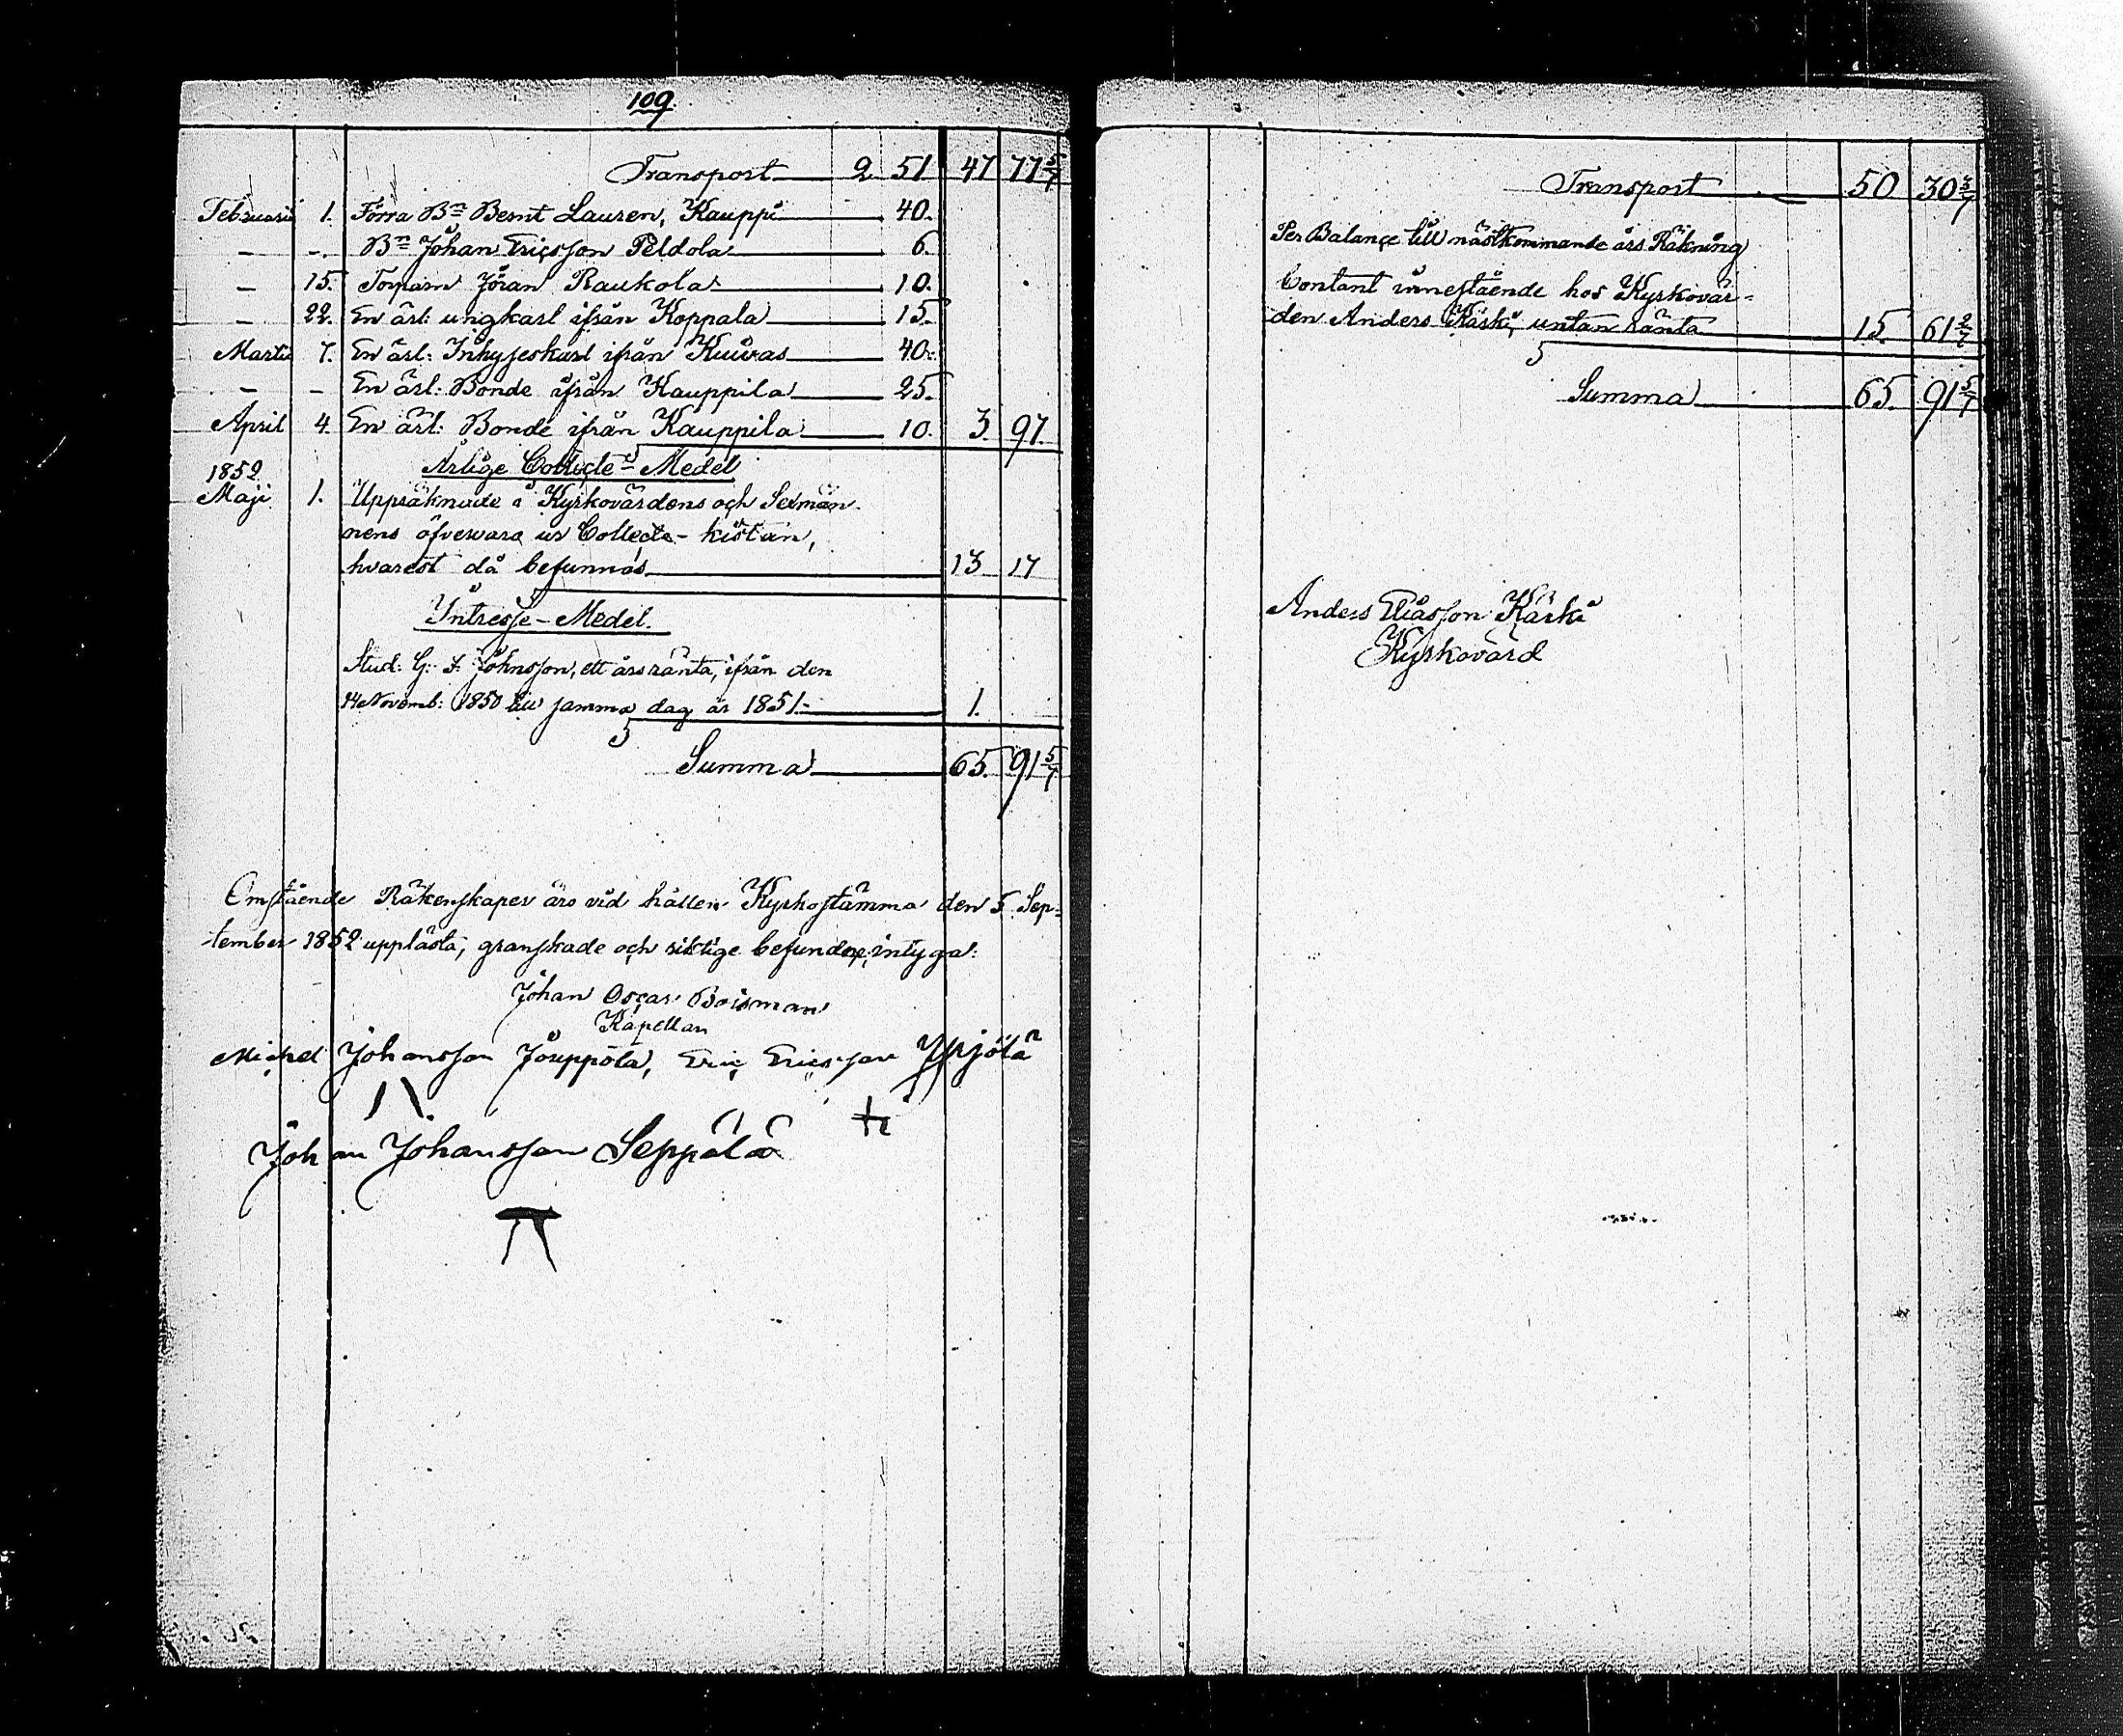 109.
Transport 2 51 47 77 5/7
Februarii 1. Förra Bn Bernt Laurén, Kauppi 40.
— —. Bn Johan Ericsson Peldola 6.
— 15. Torparn Jöran Raukola 10.
— 22. En ärl: ungkarl ifrån Koppala 15.
Martii 7. En ärl: Inhyseskarl ifrån Kuivas 40.
— — En ärl: Bonde ifrån Kauppila 25.
April 4. En ärl: Bonde ifrån Kauppila 10. 3. 97.
Årlige Collecte-Medel
1852
Maji 1. Uppräknade i Kyrkovärdens och Sexmän-
nens öfvervara ur Collecte-kistan,
hvarest då befunnos 13 17
Intresse-Medel.
Stud: G: F: Johnsson, ett års ränta, ifrån den
14 Novemb: 1850 till samma dag år 1851. 1.
Summa 65. 91 5/7
Omstående Räkenskaper äro vid hållen Kyrkostämma den 5 Sep-
tember 1852 upplästa, granskade och riktige befundne, intyga:
Johan Oscar Boisman
Kapellan
Michel Johansson Jouppola, Eric Ericsson Ypjölä
Johan Johansson Seppälä
Transport 50 30 3/7
Per Balance till nästkommande års Räkning
Contant innestående hos Kyrkovär-
den Anders Kärki, untan ränta 15. 61 2/7
Summa 65. 91 5/7
Anders Eliasson Kärki
Kyrkovärd